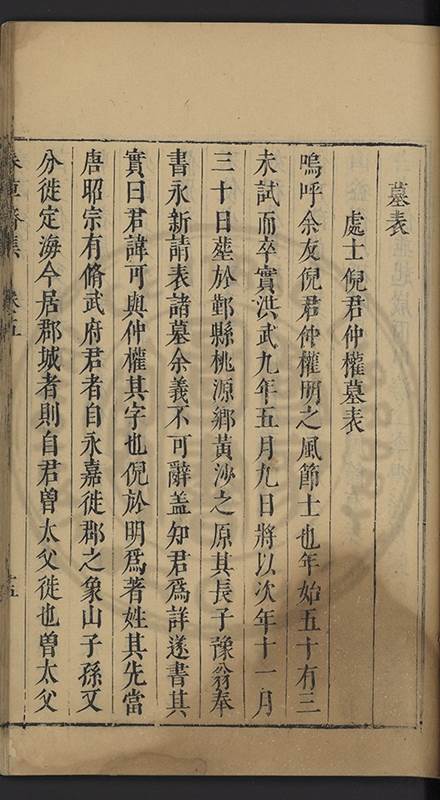 墓表
處士倪君仲權墓表
嗚呼余友倪君仲權明之風節士也年始五十有三
未試而卒實洪武九年五月九日將以次年十一月
三十日塟於鄞縣桃源鄉黃沙之原其長子豫翁奉
書永新請表諸墓余義不可辭盖知君爲詳遂書其
實曰君諱可與仲權其字也倪於明爲著姓其先當
唐昭宗有脩武府君者自永嘉徙郡之象山子孫又
分徙定海今居郡城者則自君曾太父徙也曾太父
春草齋集 卷五
十五